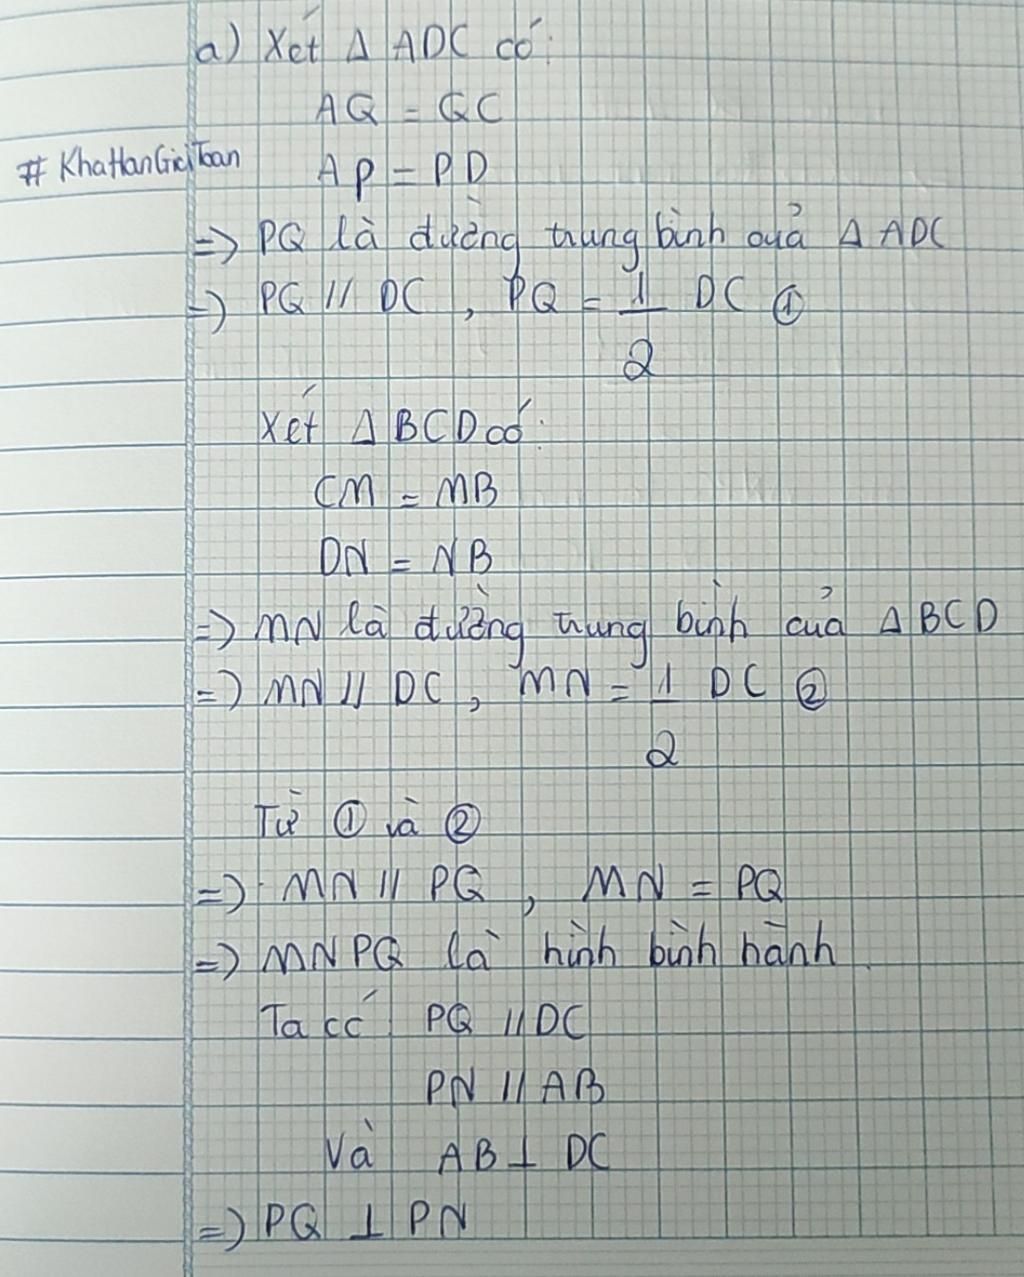 a) Xét Δ ADC có:
AQ = QC
# KhaHanGiaiToan
AP = PD
=> PQ là đường trung bình của Δ ADC
=> PQ // DC , PQ = 1/2 DC ①
Xét Δ BCD có:
CM = MB
DN = NB
=> MN là đường trung bình của Δ BCD
=> MN // DC , MN = 1/2 DC ②
Từ ① và ②
=> MN // PQ , MN = PQ
=> MNPQ là hình bình hành.
Ta có PQ // DC
PN // AB
Và AB ⊥ DC
=> PQ ⊥ PN